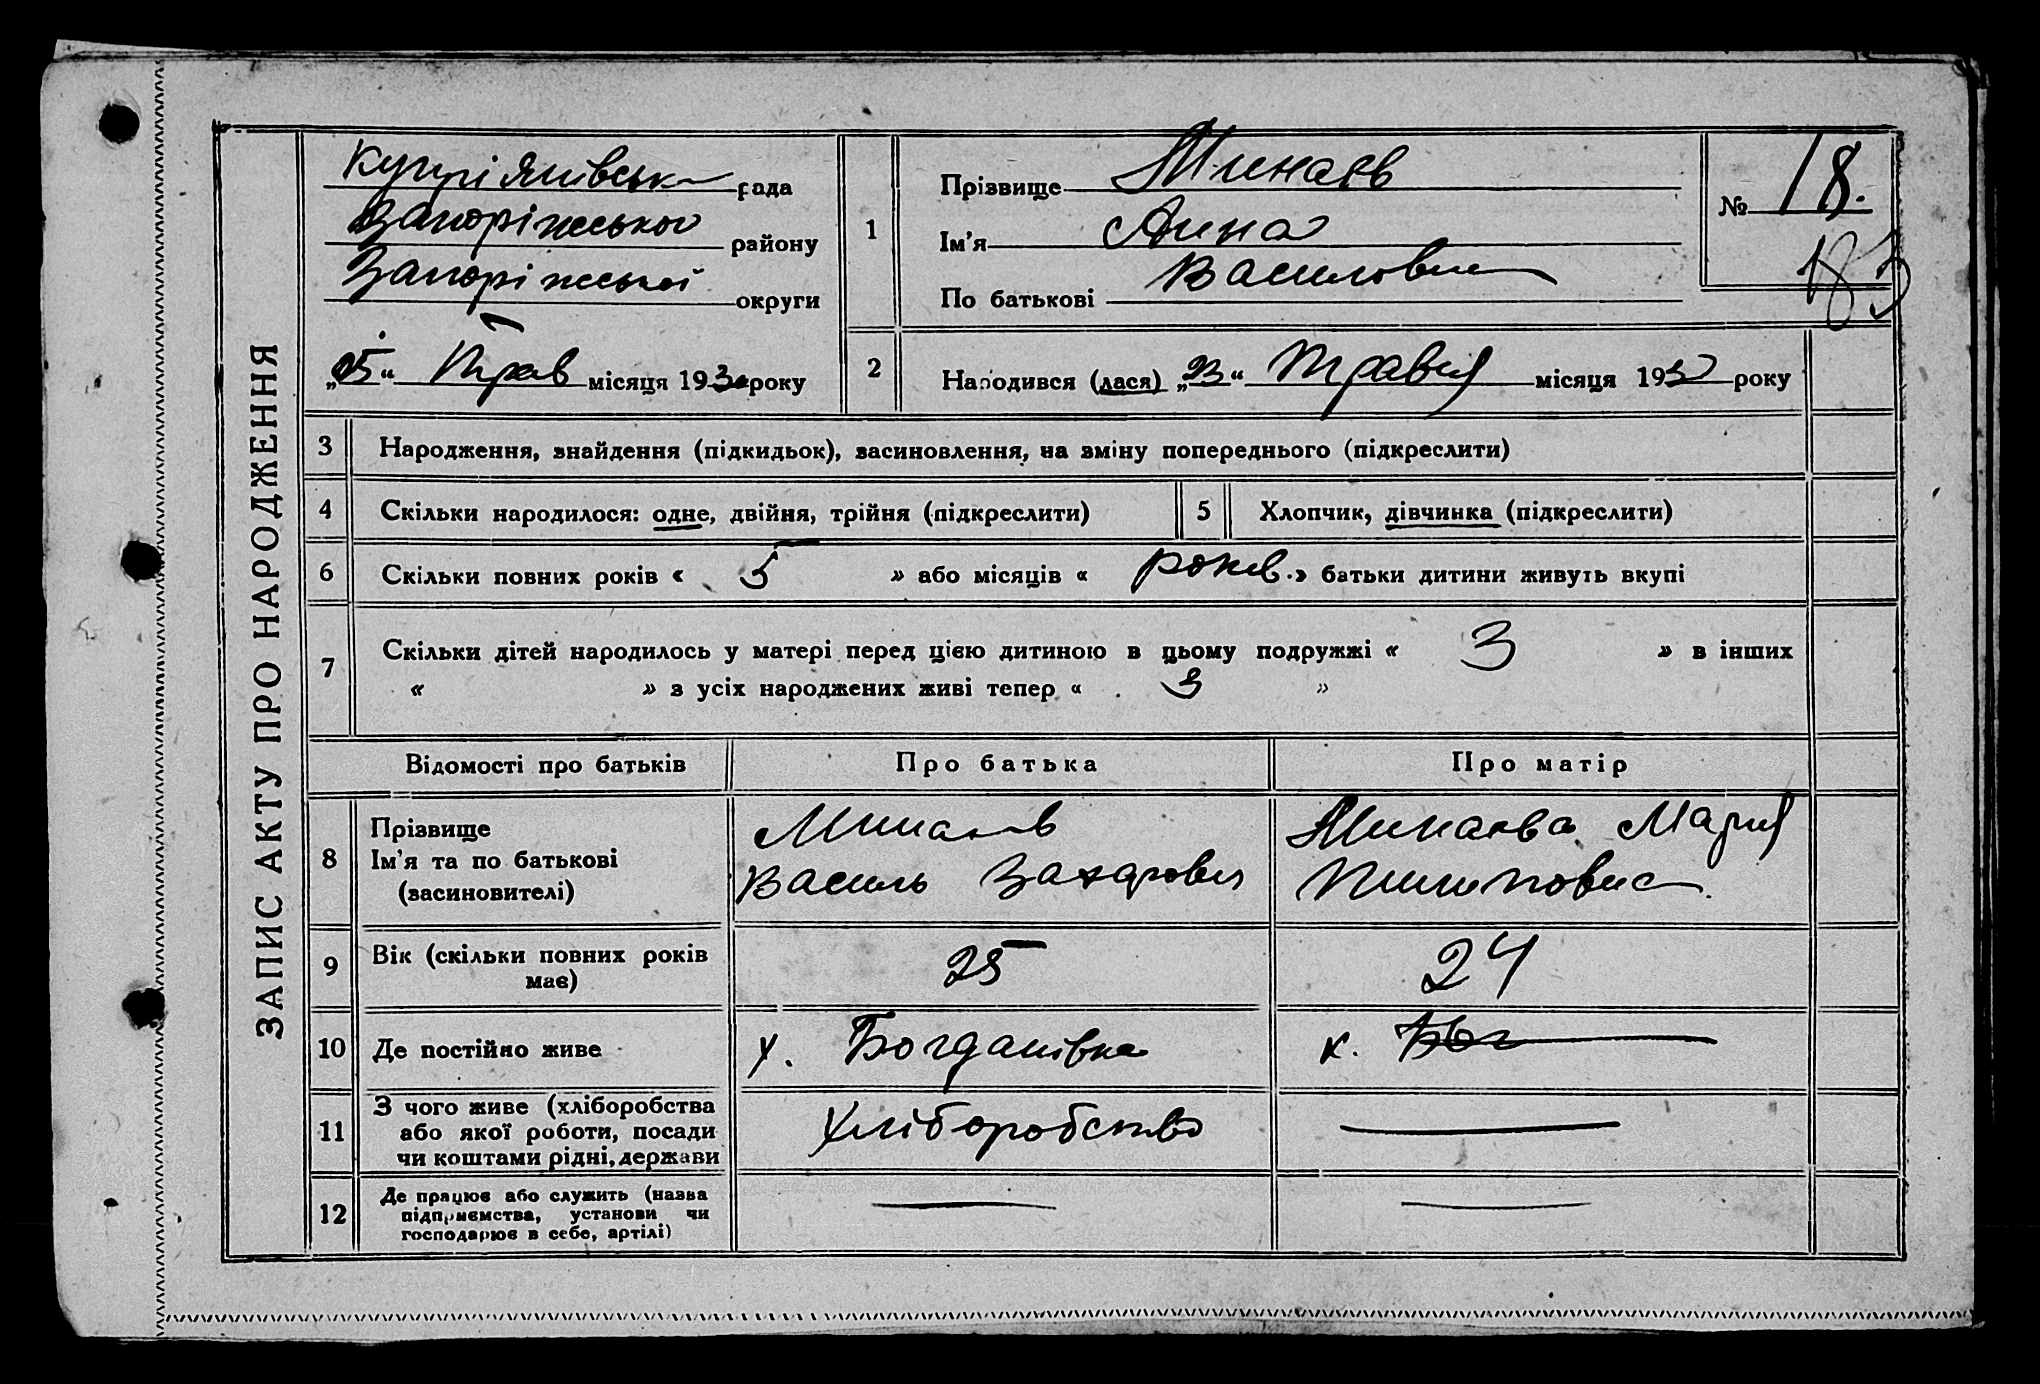 ЗАПИС АКТУ ПРО НАРОДЖЕННЯ
Купріянівська рада
Запоріжського району
Запоріжської округи
„25“ Трав місяця 1930 року
1
Прізвище Минаєв
Ім'я Анна
По батькові Василовна
№ 18.
183
2
Народився (лася) „23“ Травня місяця 1930 року
3 Народження, знайдення (підкидьок), засиновлення, на зміну попереднього (підкреслити)
4 Скільки народилося: одне, двійня, трійня (підкреслити) 5 Хлопчик, дівчинка (підкреслити)
6 Скільки повних років « 5 » або місяців « років » батьки дитини живуть вкупі
7 Скільки дітей народилось у матері перед цією дитиною в цьому подружжі « 3 » в інших
« » з усіх народжених живі тепер « 3 »
Відомості про батьків Про батька Про матір
8 Прізвище
Ім'я та по батькові
(засиновителі)
Минаєв
Василь Захарович
Минаєва Мария
Пилиповна
9 Вік (скільки повних років
має)
25 24
10 Де постійно живе х. Богданівка х.
11 З чого живе (хліборобства
або якої роботи, посади
чи коштами рідні, держави
Хліборобство
12 Де працює або служить (назва
підприємства, установи чи
господарює в себе, артілі)